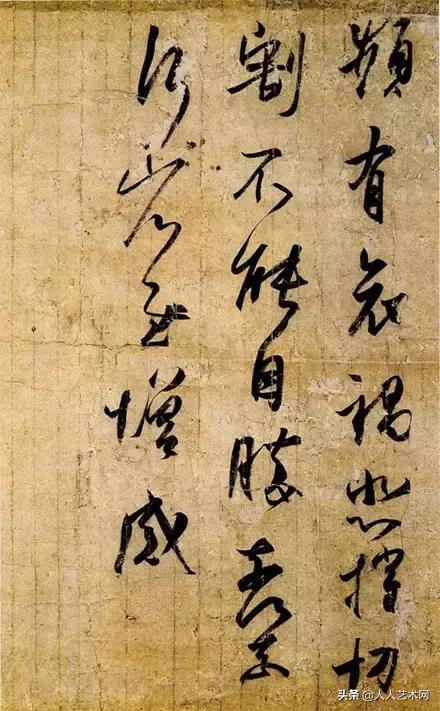 頻有哀禍悲摧切
割不能自勝奈何奈
何省慰增感
头条 @人人艺术网